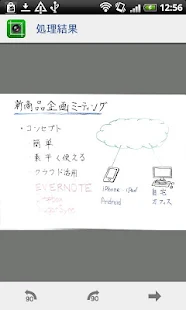 12:56
処理結果
新商品企画ミーティング
・コンセプト
簡単
素早く使える
クラウド活用
EVERNOTE
SugarSync
iPhone・iPad
Android
自宅
オフィス
90
90